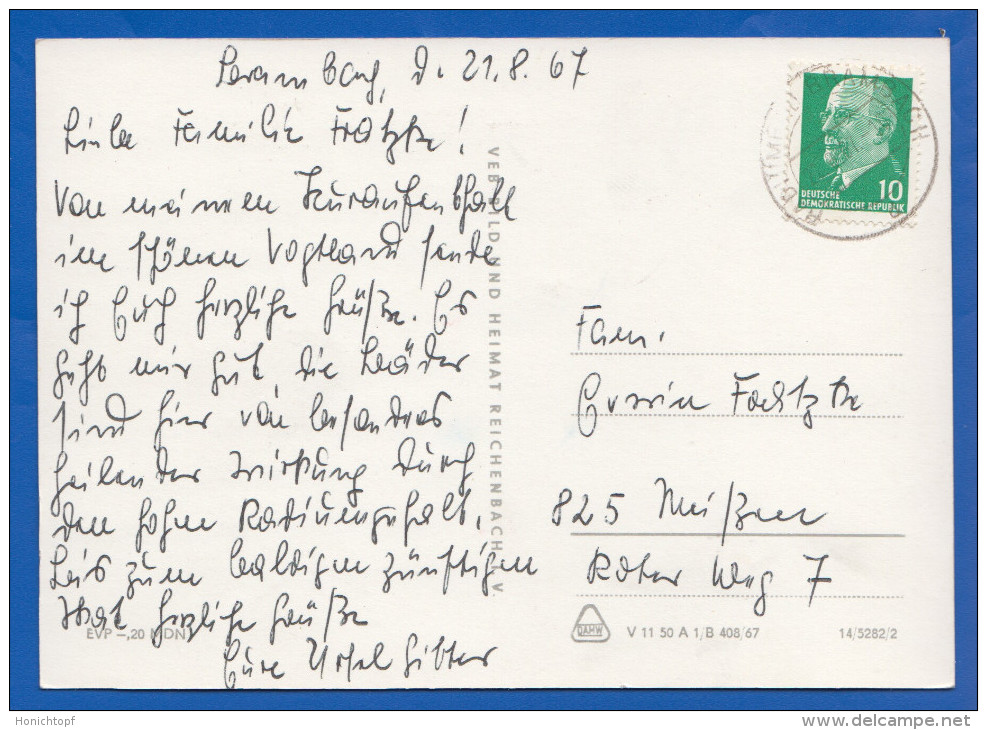 Brambach, d. 21.8.67
Liebe Familie
Von meinem Kuraufenthalt
im schönen Vogtland sende
ich Euch herzliche Grüße. Es
geht mir gut, die Bäder
sind hier von besonders
heilender Wirkung durch
den hohen Radiumgehalt.
Bis zum baldigen zünftigen
Skat herzliche Grüße
Eure
VEB BILD UND HEIMAT REICHENBACH I. V.
BRAMBACH
10
DEUTSCHE
DEMOKRATISCHE REPUBLIK
Fam.
Erwin
825 Meißen
Roter Weg 7
EVP –,20 MDN
DAMW
V 11 50 A 1/B 408/67
14/5282/2
Honichtopf
www.delcampe.net